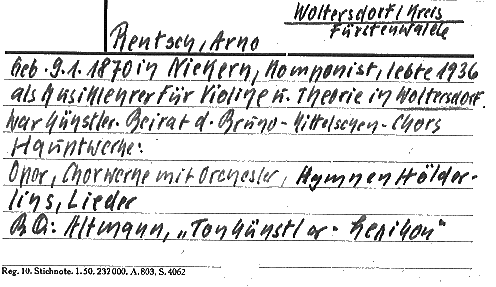 Woltersdorf/Kreis
Fürstenwalde
Rentsch, Arno
Geb. 9.1.1870 in Nickern, Komponist, lebte 1936
als Musiklehrer für Violine u. Theorie in Woltersdorf.
War künstler. Beirat d. Bruno-Kittelschen-Chors
Hauptwerke:
Oper, Chorwerke mit Orchester, Hymnen Hölder-
lins, Lieder
BQ: Altmann, „Tonkünstler-Lexikon"
Reg. 10. Stichnote. 1. 50. 232000. A. 803, S. 4062